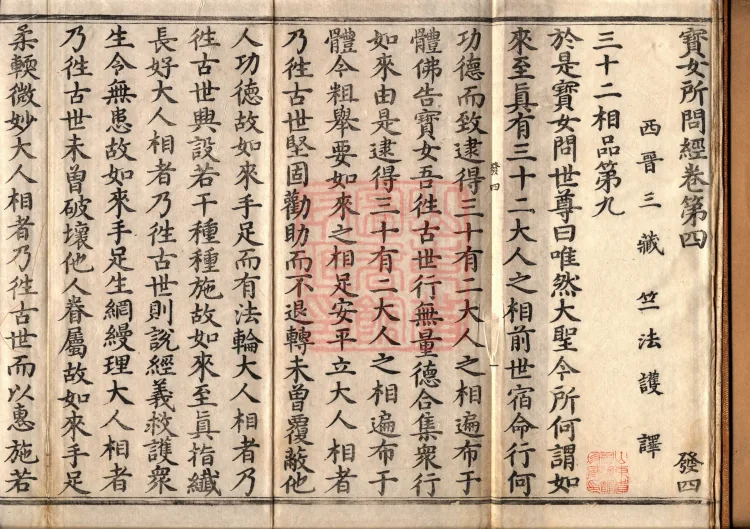 寶女所問經卷第四 發四
西晉三藏竺法護譯
三十二相品第九
於是寶女問世尊曰唯然大聖令所何謂如
來至眞有三十二大人之相前世宿命行何
發四
功德而致逮得三十有二大人之相遍布于
體佛告寶女吾往古世行無量德合集衆行
如來由是逮得三十有二大人之相遍布于
體今粗舉要如來之相足安平立大人相者
乃往古世堅固勸助而不退轉未曾覆蔽他
人功德故如來手足而有法輪大人相者乃
往古世興設若干種種施故如來至眞指纖
長好大人相者乃往古世則說經義救護衆
生令無患故如來手足生網縵理大人相者
乃往古世未曾破壞他人眷屬故如來手足
柔輭微妙大人相者乃往古世而以惠施若